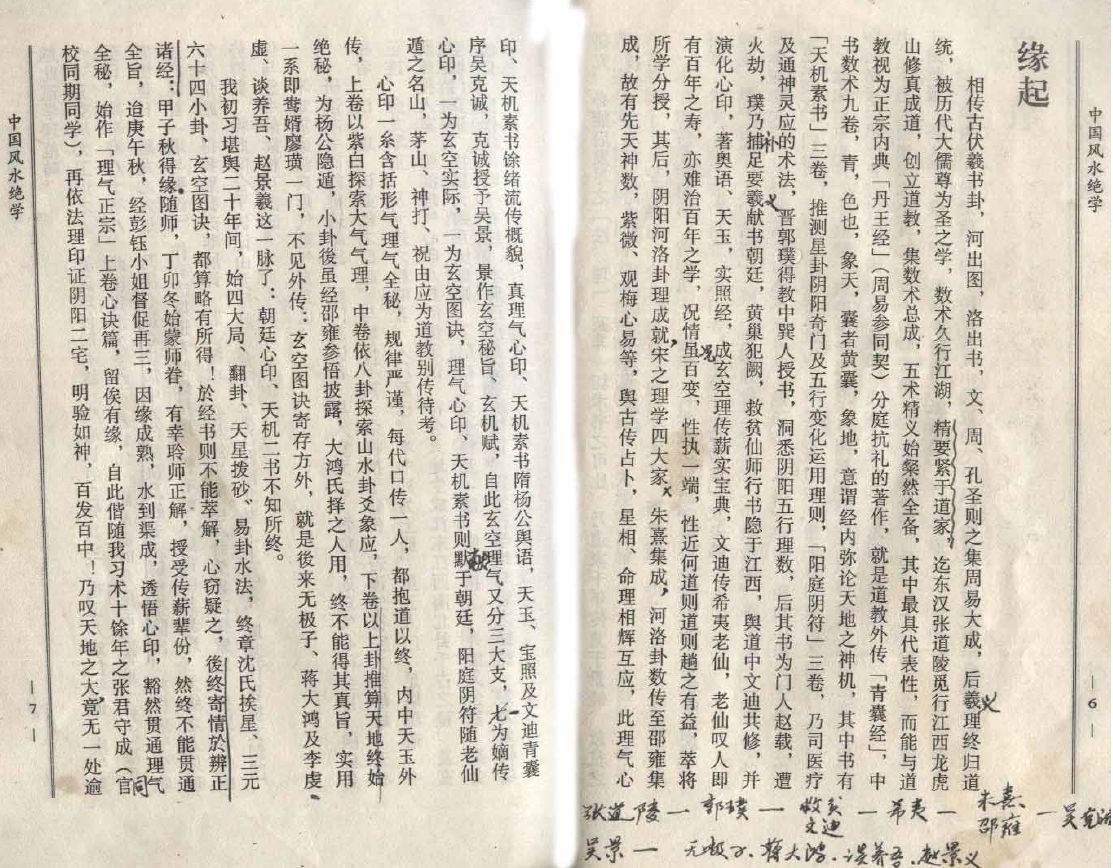 中国风水绝学
— 6 —
缘起
相传古伏羲书卦，河出图，洛出书，文、周、孔圣则之集周易大成，后羲理终归道
义
统，被历代大儒尊为圣之学，数术久行江湖，精要紧于道家，迄东汉张道陵觅行江西龙虎
山修真成道，创立道教，集数术总成，五术精义始粲然全备，其中最具代表性，而能与道
教视为正宗内典「丹王经」（周易参同契）分庭抗礼的著作，就是道教外传「青囊经」，中
书数术九卷，青，色也，象天，囊者黄囊，象地，意谓经内弥论天地之神机，其中书有
「天机素书」三卷，推测星卦阴阳奇门及五行变化运用理则，「阳庭阴符」三卷，乃司医疗
及通神灵应的术法，晋郭璞得教中巽人授书，洞悉阴阳五行理数，后其书为门人赵载，遭
火劫，璞乃捕足要羲献书朝廷，黄巢犯阙，救贫仙师行书隐于江西，舆道中文迪共修，并
补
义
演化心印，著奥语、天玉，实照经，成玄空理传薪实宝典，文迪传希夷老仙，老仙叹人即
有百年之寿，亦难治百年之学，况情虽百变，性执一端，性近何道则道则趟之有益，萃将
况
所学分授，其后，阴阳河洛卦理成就宋之理学四大家，朱熹集成，河洛卦数传至邵雍集
成，故有先天神数，紫微、观梅心易等，舆古传占卜，星相、命理相辉互应，此理气心
张道陵 — 郭璞 — 救贫 文迪 — 希夷 — 朱熹 邵雍 — 吴克诚
吴景 — 无极子、蒋大鸿、谈养吾、赵景义
印、天机素书馀绪流传概貌，真理气心印、天机素书隋杨公舆语，天玉、宝照及文迪青囊
序吴克诚，克诚授予吴景，景作玄空秘旨、玄机赋，自此玄空理气又分三大支，七为嫡传
一
心印，一为玄空实际，一为玄空图诀，理气心印、天机素书则默于朝廷，阳庭阴符随老仙
遁之名山，茅山、神打、祝由应为道教别传待考。
心印一糸含括形气理气全秘，规律严谨，每代口传一人，都抱道以终，内中天玉外
传，上卷以紫白探索大气气理，中卷依八卦探索山水卦爻象应，下卷以上卦推算天地终始
绝秘，为杨公隐遁，小卦後虽经邵雍参悟披露，大鸿氏择之人用，终不能得其真旨，实用
一系即鸯婿廖璜一门，不见外传；玄空图诀寄存方外，就是後来无极子、蒋大鸿及李虔
虚、谈养吾、赵景羲这一脉了；朝廷心印、天机二书不知所终。
我初习堪舆二十年间，始四大局、翻卦、天星拨砂、易卦水法，终章沈氏挨星、三元
六十四小卦、玄空图诀，都算略有所得！於经书则不能萃解，心窃疑之，後终寄情於辨正
诸经；甲子秋得缘随师，丁卯冬始蒙师眷，有幸聆师正解，授受传薪辈份，然终不能贯通
全旨，迨庚午秋，经彭钰小姐督促再三，因缘成熟，水到渠成，透悟心印，豁然贯通理气
全秘，始作「理气正宗」上卷心诀篇，留俟有缘，自此偕随我习术十馀年之张君守成（官
同
校同期同学），再依法理印证阴阳二宅，明验如神，百发百中！乃叹天地之大竟无一处逾
中国风水绝学
— 7 —